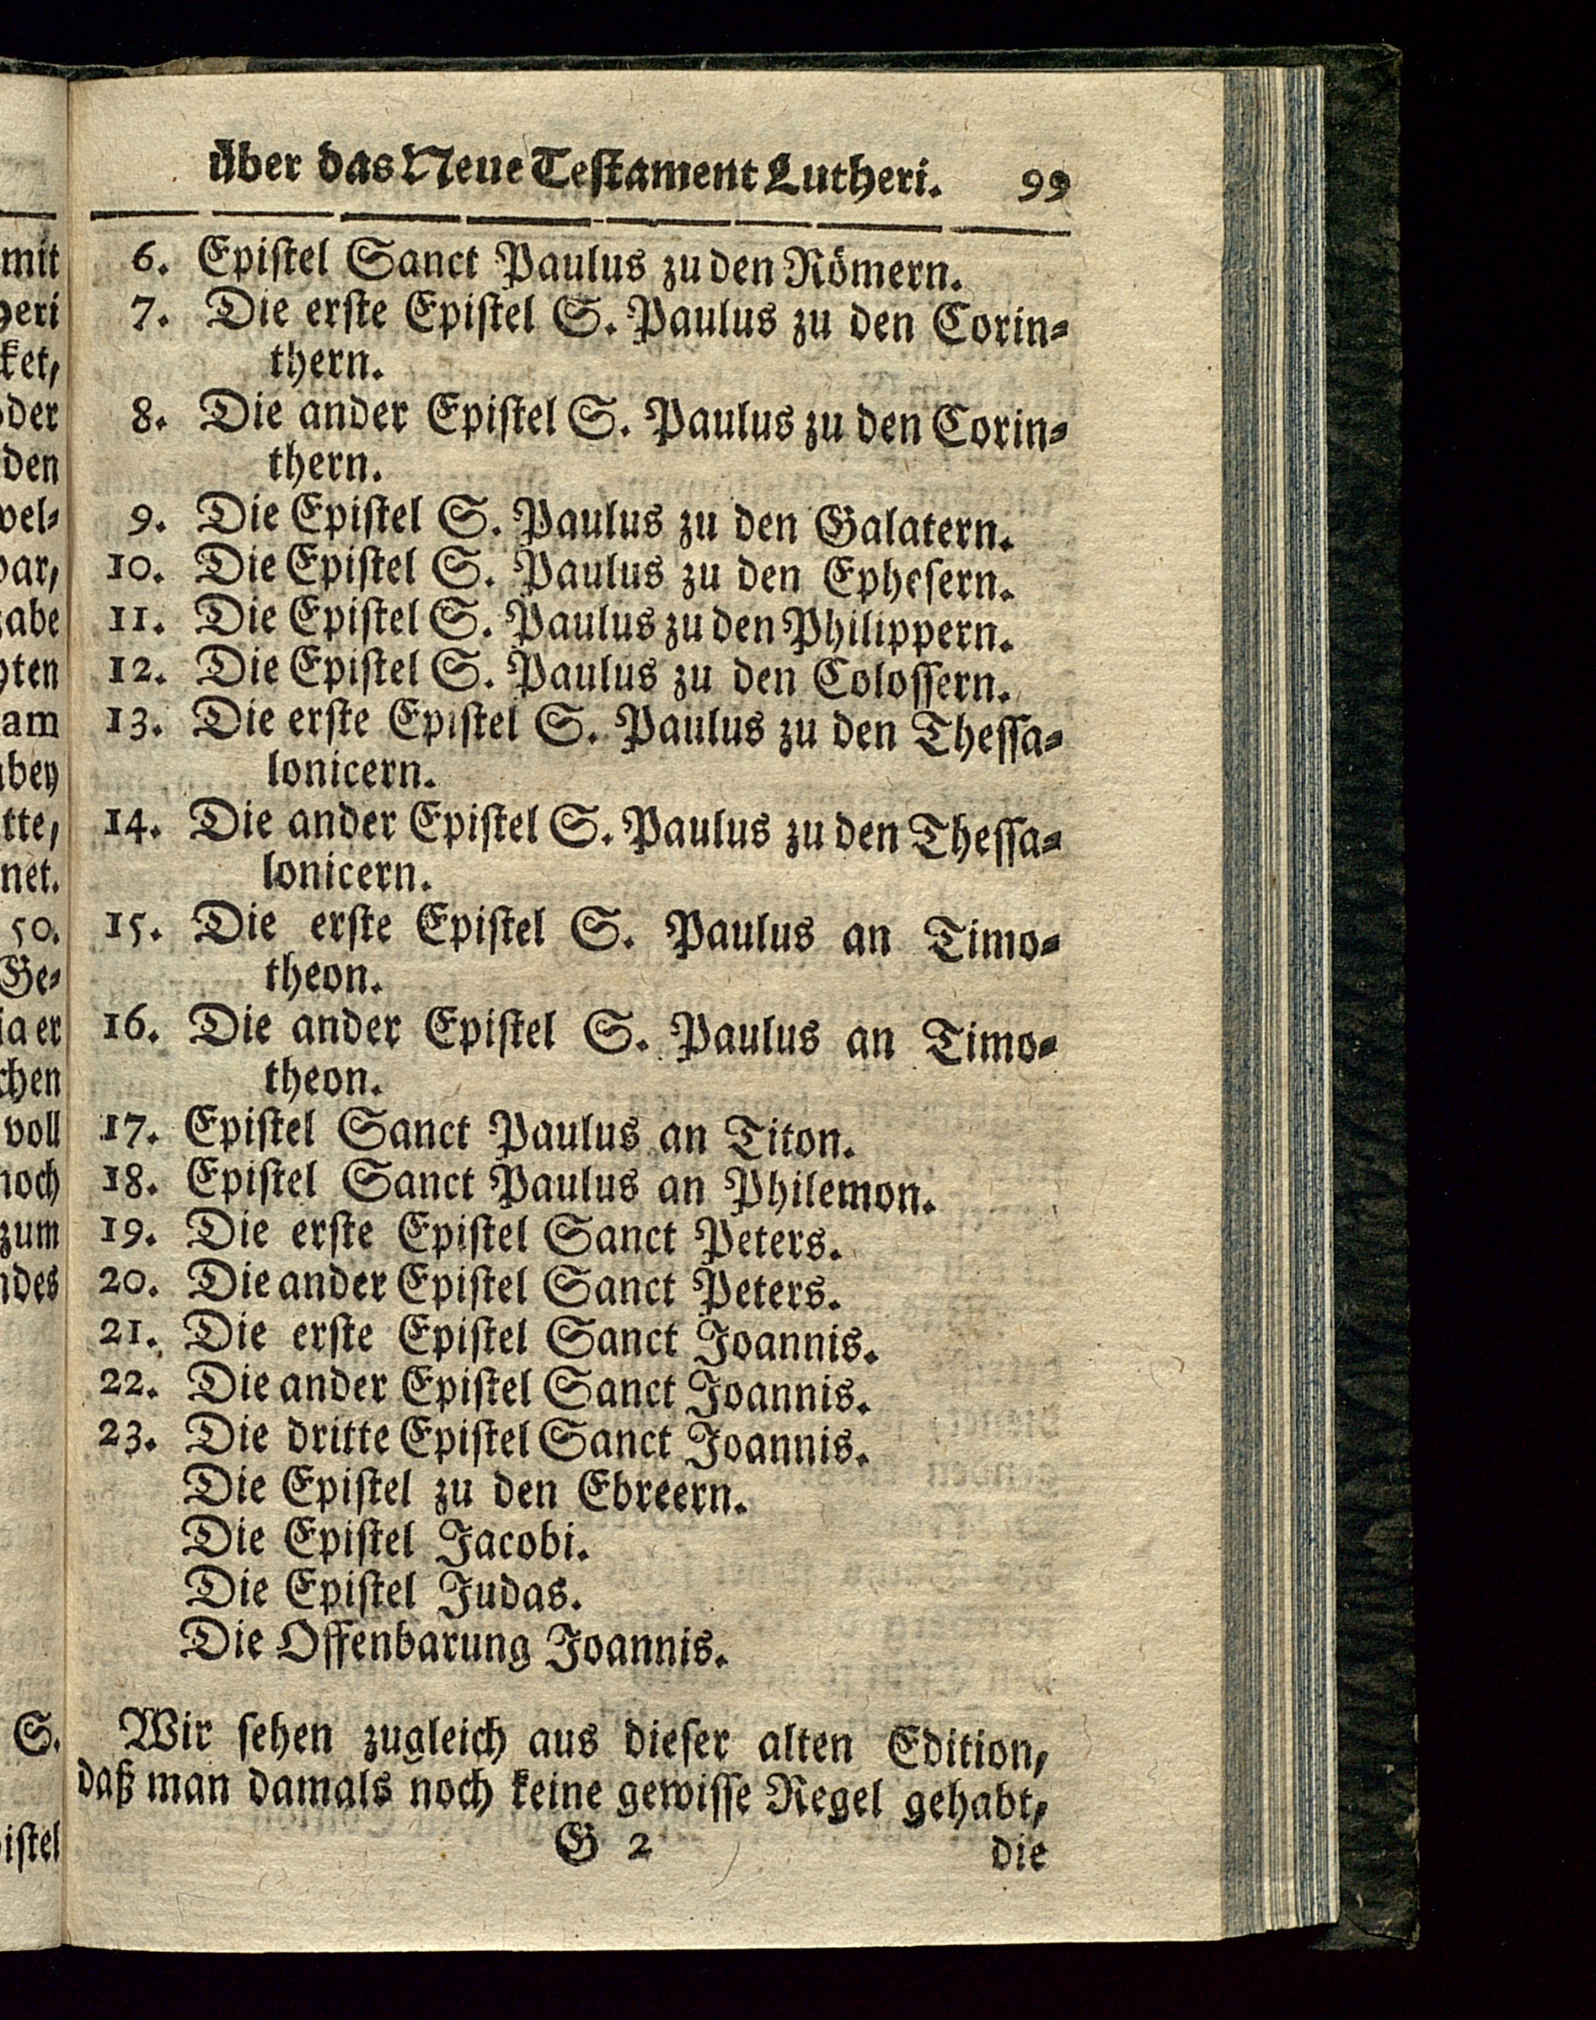 über das Neue Testament Lutheri. 99
6. Epistel Sanct Paulus zu den Römern.
7. Die erste Epistel S. Paulus zu den Corin-
thern.
8. Die ander Epistel S. Paulus zu den Corin-
thern.
9. Die Epistel S. Paulus zu den Galatern.
10. Die Epistel S. Paulus zu den Ephesern.
11. Die Epistel S. Paulus zu den Philippern.
12. Die Epistel S. Paulus zu den Colossern.
13. Die erste Epistel S. Paulus zu den Thessa-
lonicern.
14. Die ander Epistel S. Paulus zu den Thessa-
lonicern.
15. Die erste Epistel S. Paulus an Timo-
theon.
16. Die ander Epistel S. Paulus an Timo-
theon.
17. Epistel Sanct Paulus an Titon.
18. Epistel Sanct Paulus an Philemon.
19. Die erste Epistel Sanct Peters.
20. Die ander Epistel Sanct Peters.
21. Die erste Epistel Sanct Joannis.
22. Die ander Epistel Sanct Joannis.
23. Die dritte Epistel Sanct Joannis.
Die Epistel zu den Ebreern.
Die Epistel Jacobi.
Die Epistel Judas.
Die Offenbarung Joannis.
Wir sehen zugleich aus dieser alten Edition,
daß man damals noch keine gewisse Regel gehabt,
G 2 die